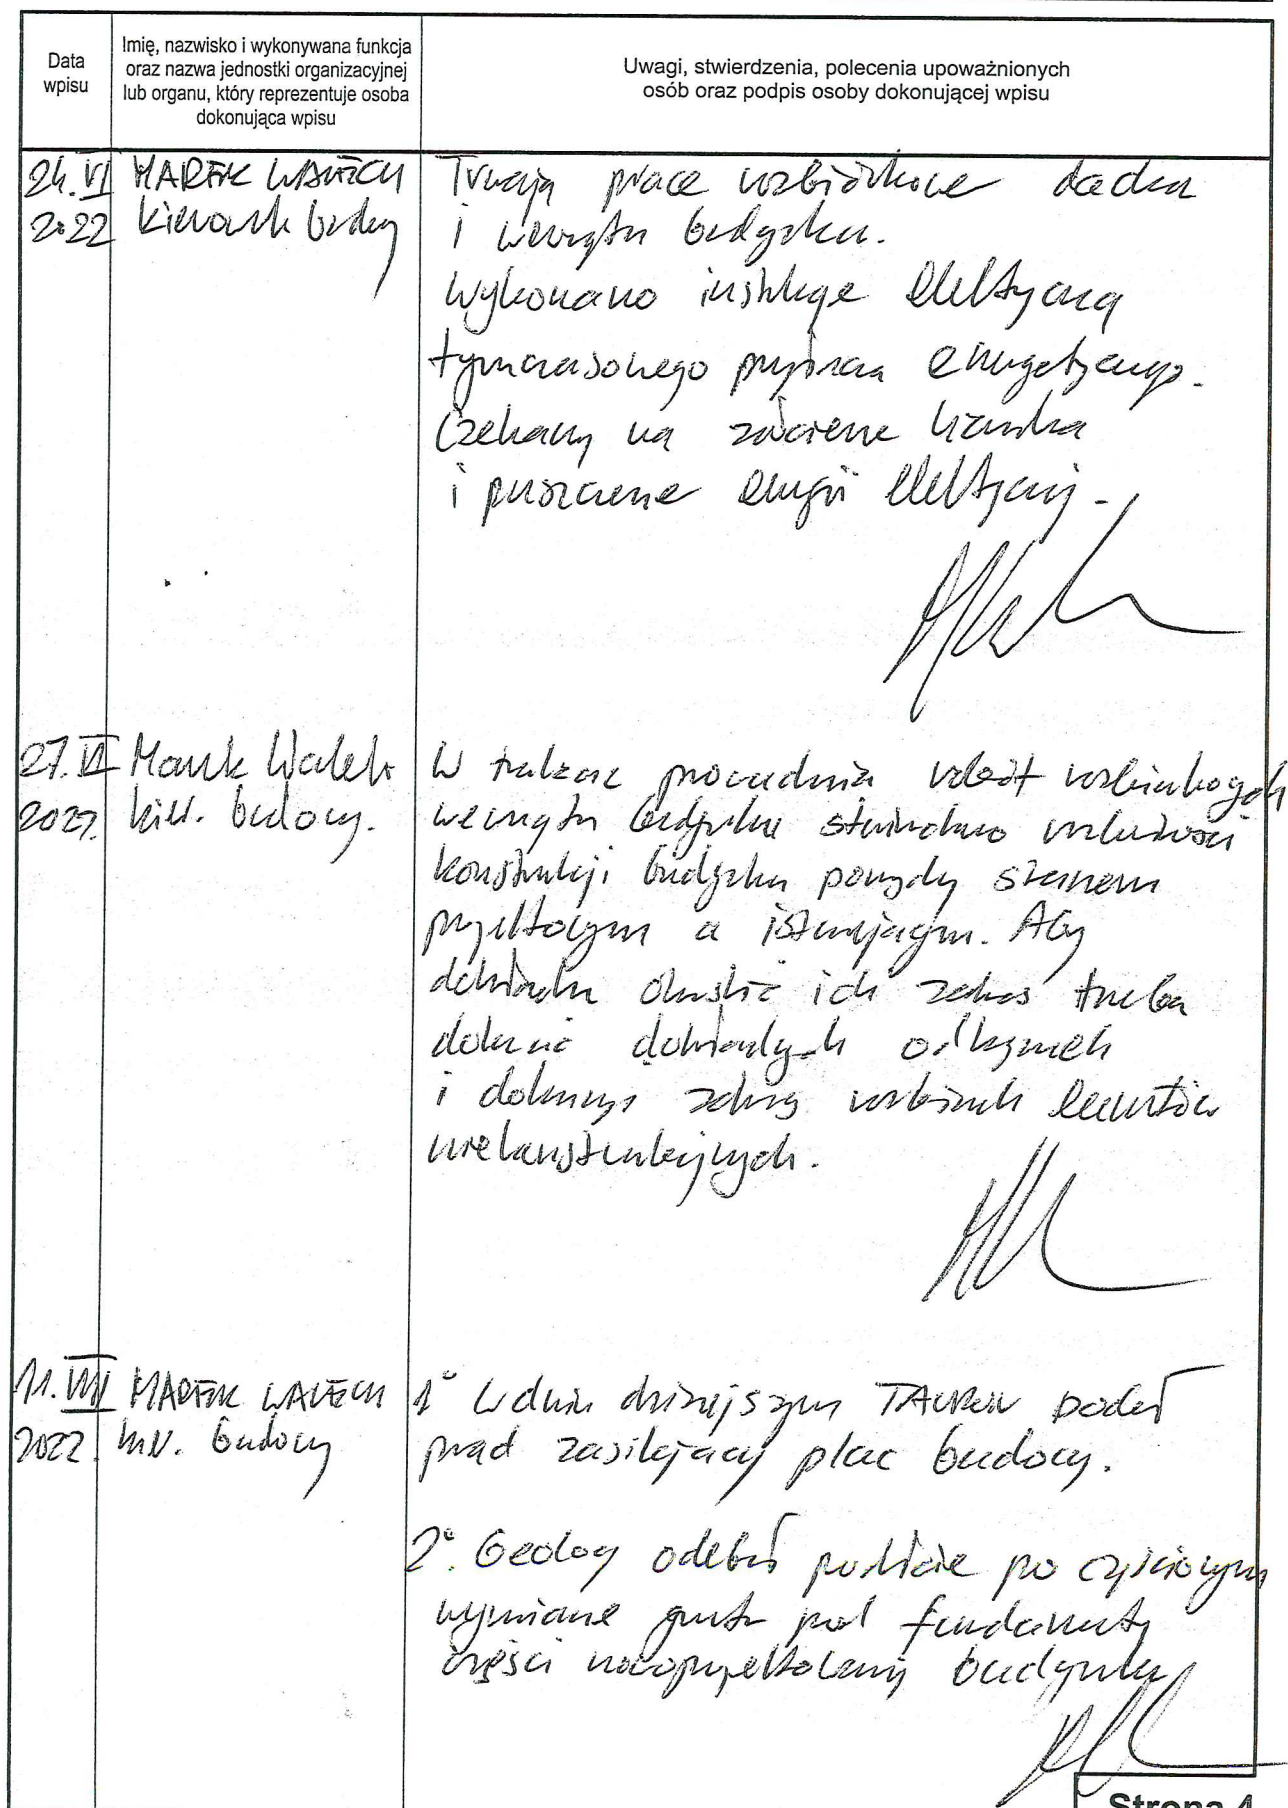 Data
wpisu
Imię, nazwisko i wykonywana funkcja
oraz nazwa jednostki organizacyjnej
lub organu, który reprezentuje osoba
dokonująca wpisu
Uwagi, stwierdzenia, polecenia upoważnionych
osób oraz podpis osoby dokonującej wpisu
24.VI
2022
MAREK
Trwają prace rozbiórkowe dachu
i wewnątrz budynku.
Wykonano instalację elektryczną
tymczasowego przyłącza energetycznego.
Czekamy na
i puszczenie energii elektrycznej.
27.VI
2022.
Marek
kier. budowy.
W trakcie prowadzenia robót rozbiórkowych
wewnątrz budynku stwierdzono rozbieżności
konstrukcji budynku pomędzy stanem
projektowym a istniejącym. Aby
dokładnie określić ich zakres trzeba
dokonać dokładnych odkrywek
i rozbiórek elementów
niekonstrukcyjnych.
2022
MAREK
kier. budowy
1° W dniu dzisiejszym TAURON podał
prąd zasilający plac budowy.
2°. Geolog odebrał podłoże po częściowym
wymianie gruntu pod fundamenty
części nowoprojektowanej budynku
Strona 4